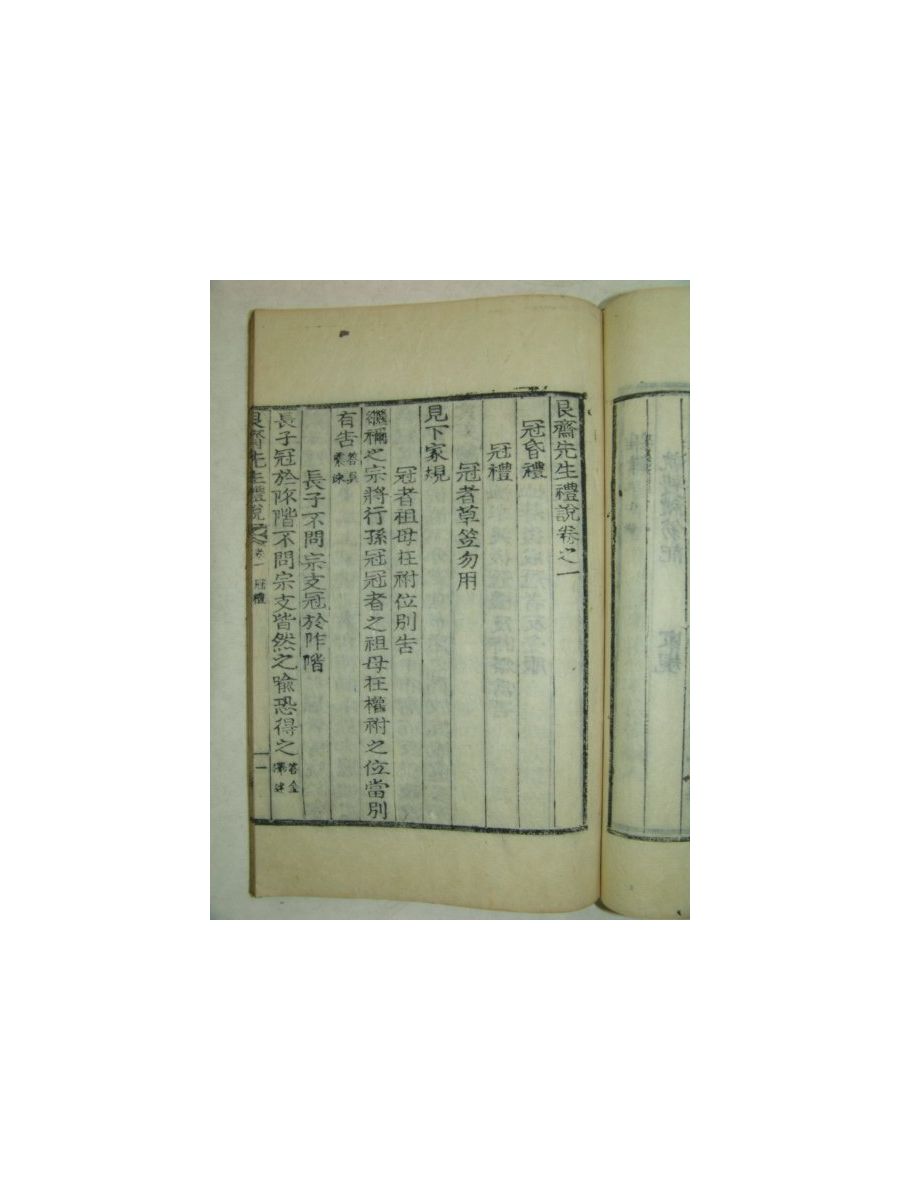 艮齋先生禮說卷之一
冠昏禮
冠禮
冠者草笠勿用
見下家規
冠者祖母在祔位別告
繼禰之宗將行孫冠冠者之祖母在權祔之位當別
有告答吳震泳
長子不問宗支冠於阼階
長子冠於阼階不問宗支皆然之喩恐得之答金
艮齋先生禮說 卷一 冠禮 一